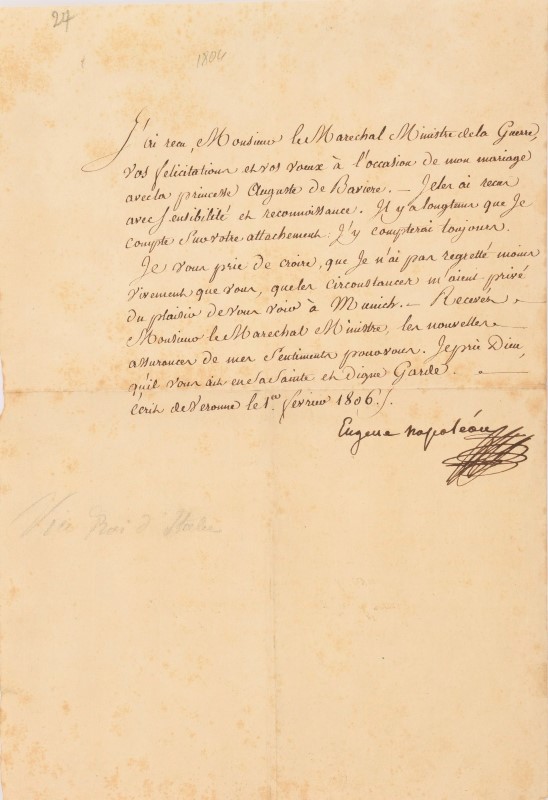 27
1806
J'ai recu, Monsieur le Marechal Ministre de la Guerre,
vos felicitations et vos vœux à l'occasion de mon mariage
avec la princesse Auguste de Baviere. — Je les ai recus
avec sensibilité et reconnoissance. Il y a longtems que Je
compte sur votre attachement: J'y compterai toujours.
Je vous prie de croire, que Je n'ai pas regretté moins
vivement que vous, que les circonstances m'aient privé
du plaisir de vous voir à Munich. — Recevez
Monsieur le Marechal Ministre, les nouvelles
assurances de mes Sentimens pour vous. Je prie Dieu,
qu'il vous ait en Sa Sainte et digne Garde. —
écrit de Veronne le 1er fevrier 1806./.
Eugene Napoléon
Vice Roi d'Italie